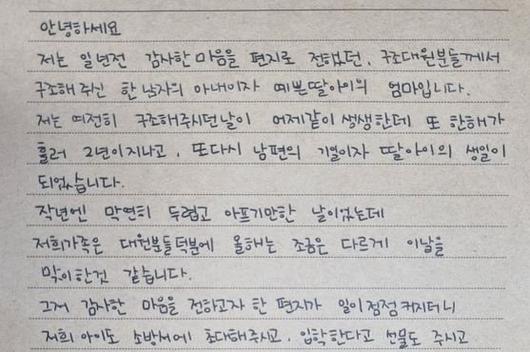 안녕하세요
저는 일년전 감사한 마음을 편지로 전했던, 구조대원분들께서
구조해 주신 한 남자의 아내이자 예쁜딸아이의 엄마입니다.
저는 여전히 구조해주시던날이 어제같이 생생한데 또 한해가
흘러 2년이 지나고, 또다시 남편의 기일이자 딸아이의 생일이
되었습니다.
작년엔 막연히 두렵고 아프기만한 날이었는데
저희가족은 대원분들덕분에 올해는 조금은 다르게 이날을
맞이한것 같습니다.
그저 감사한 마음을 전하고자 한 편지가 일이점점 커지더니
저희 아이도 소방서에 초대해주시고, 입학한다고 선물도 주시고